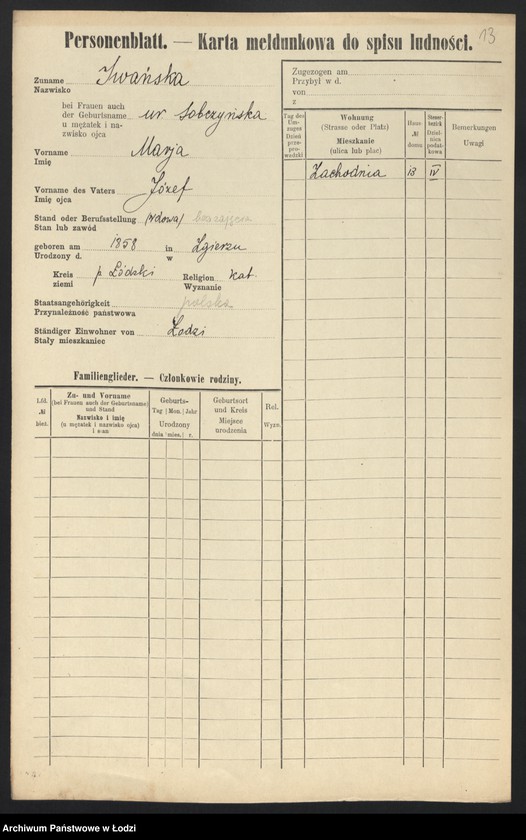 13
Personenblatt. — Karta meldunkowa do spisu ludności.
Zuname
Nazwisko
Iwańska
bei Frauen auch
der Geburtsname
u mężatek i na-
zwisko ojca
ur Sobczyńska
Vorname
Imię
Marja
Vorname des Vaters
Imię ojca
Józef
Stand oder Berufsstellung (wdowa)
Stan lub zawód
geboren am 1858 in Zgierzu
Urodzony d. w
Kreis p. Łódzki Religion kat.
ziemi Wyznanie
Staatsangehörigkeit polska
Przynależność państwowa
Ständiger Einwohner von Łodzi
Stały mieszkaniec
Familienglieder. — Członkowie rodziny.
Lfd.
№
bież.
Zu- und Vorname
(bei Frauen auch der Geburtsname)
und Stand
Nazwisko i imię
(u mężatek i nazwisko ojca)
i stan
Geburts-
Tag | Mon. | Jahr
Urodzony
dnia | mies. | r.
Geburtsort
und Kreis
Miejsce
urodzenia
Rel.
Wyzn.
Zugezogen am
Przybył w d.
von
z
Tag des
Um-
zuges
Dzień
prze-
pro-
wadzki
Wohnung
(Strasse oder Platz)
Mieszkanie
(ulica lub plac)
Haus
№
domu
Steuer-
bezirk
Dziel-
nica
podat-
kowa
Bemerkungen
Uwagi
Zachodnia 13 IV
Archiwum Państwowe w Łodzi